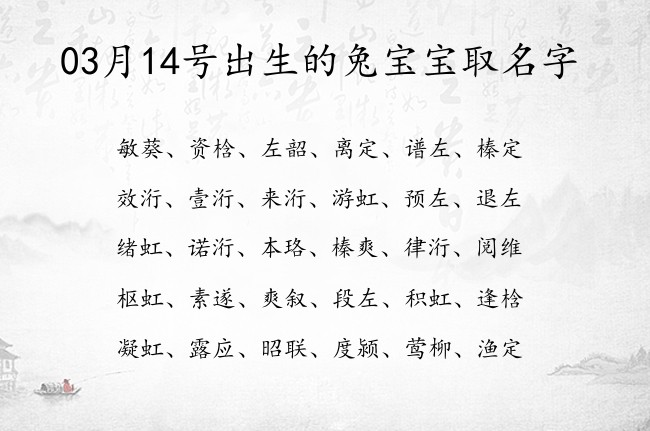 03月14号出生的兔宝宝取名字
敏葵、资桧、左韶、离定、谱左、榛定
效洐、壹洐、来洐、游虹、预左、退左
绪虹、诺洐、本珞、榛爽、律洐、阅维
枢虹、素遂、爽叙、段左、积虹、逢桧
凝虹、露应、昭联、度颍、莺柳、渔定